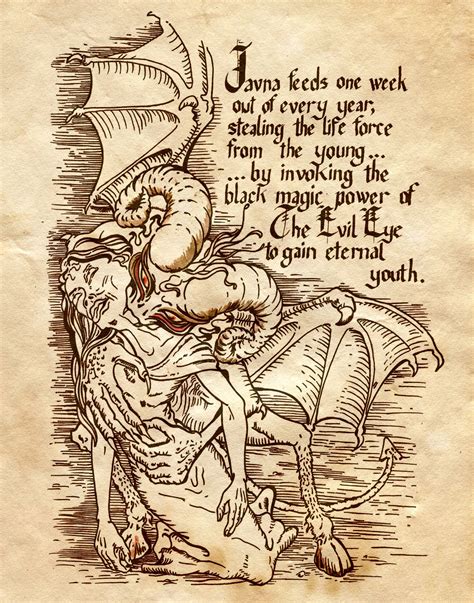 Javna feeds one week
out of every year,
stealing the life force
from the young...
...by invoking the
black magic power of
The Evil Eye
to gain eternal
youth.